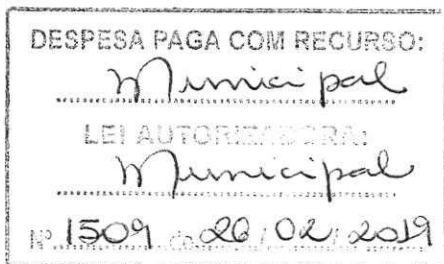 DESPESA PAGA COM RECURSO:
Municipal
LEI AUTORIZADORA:
Municipal
Nº 1509 de 26 / 02 / 2019